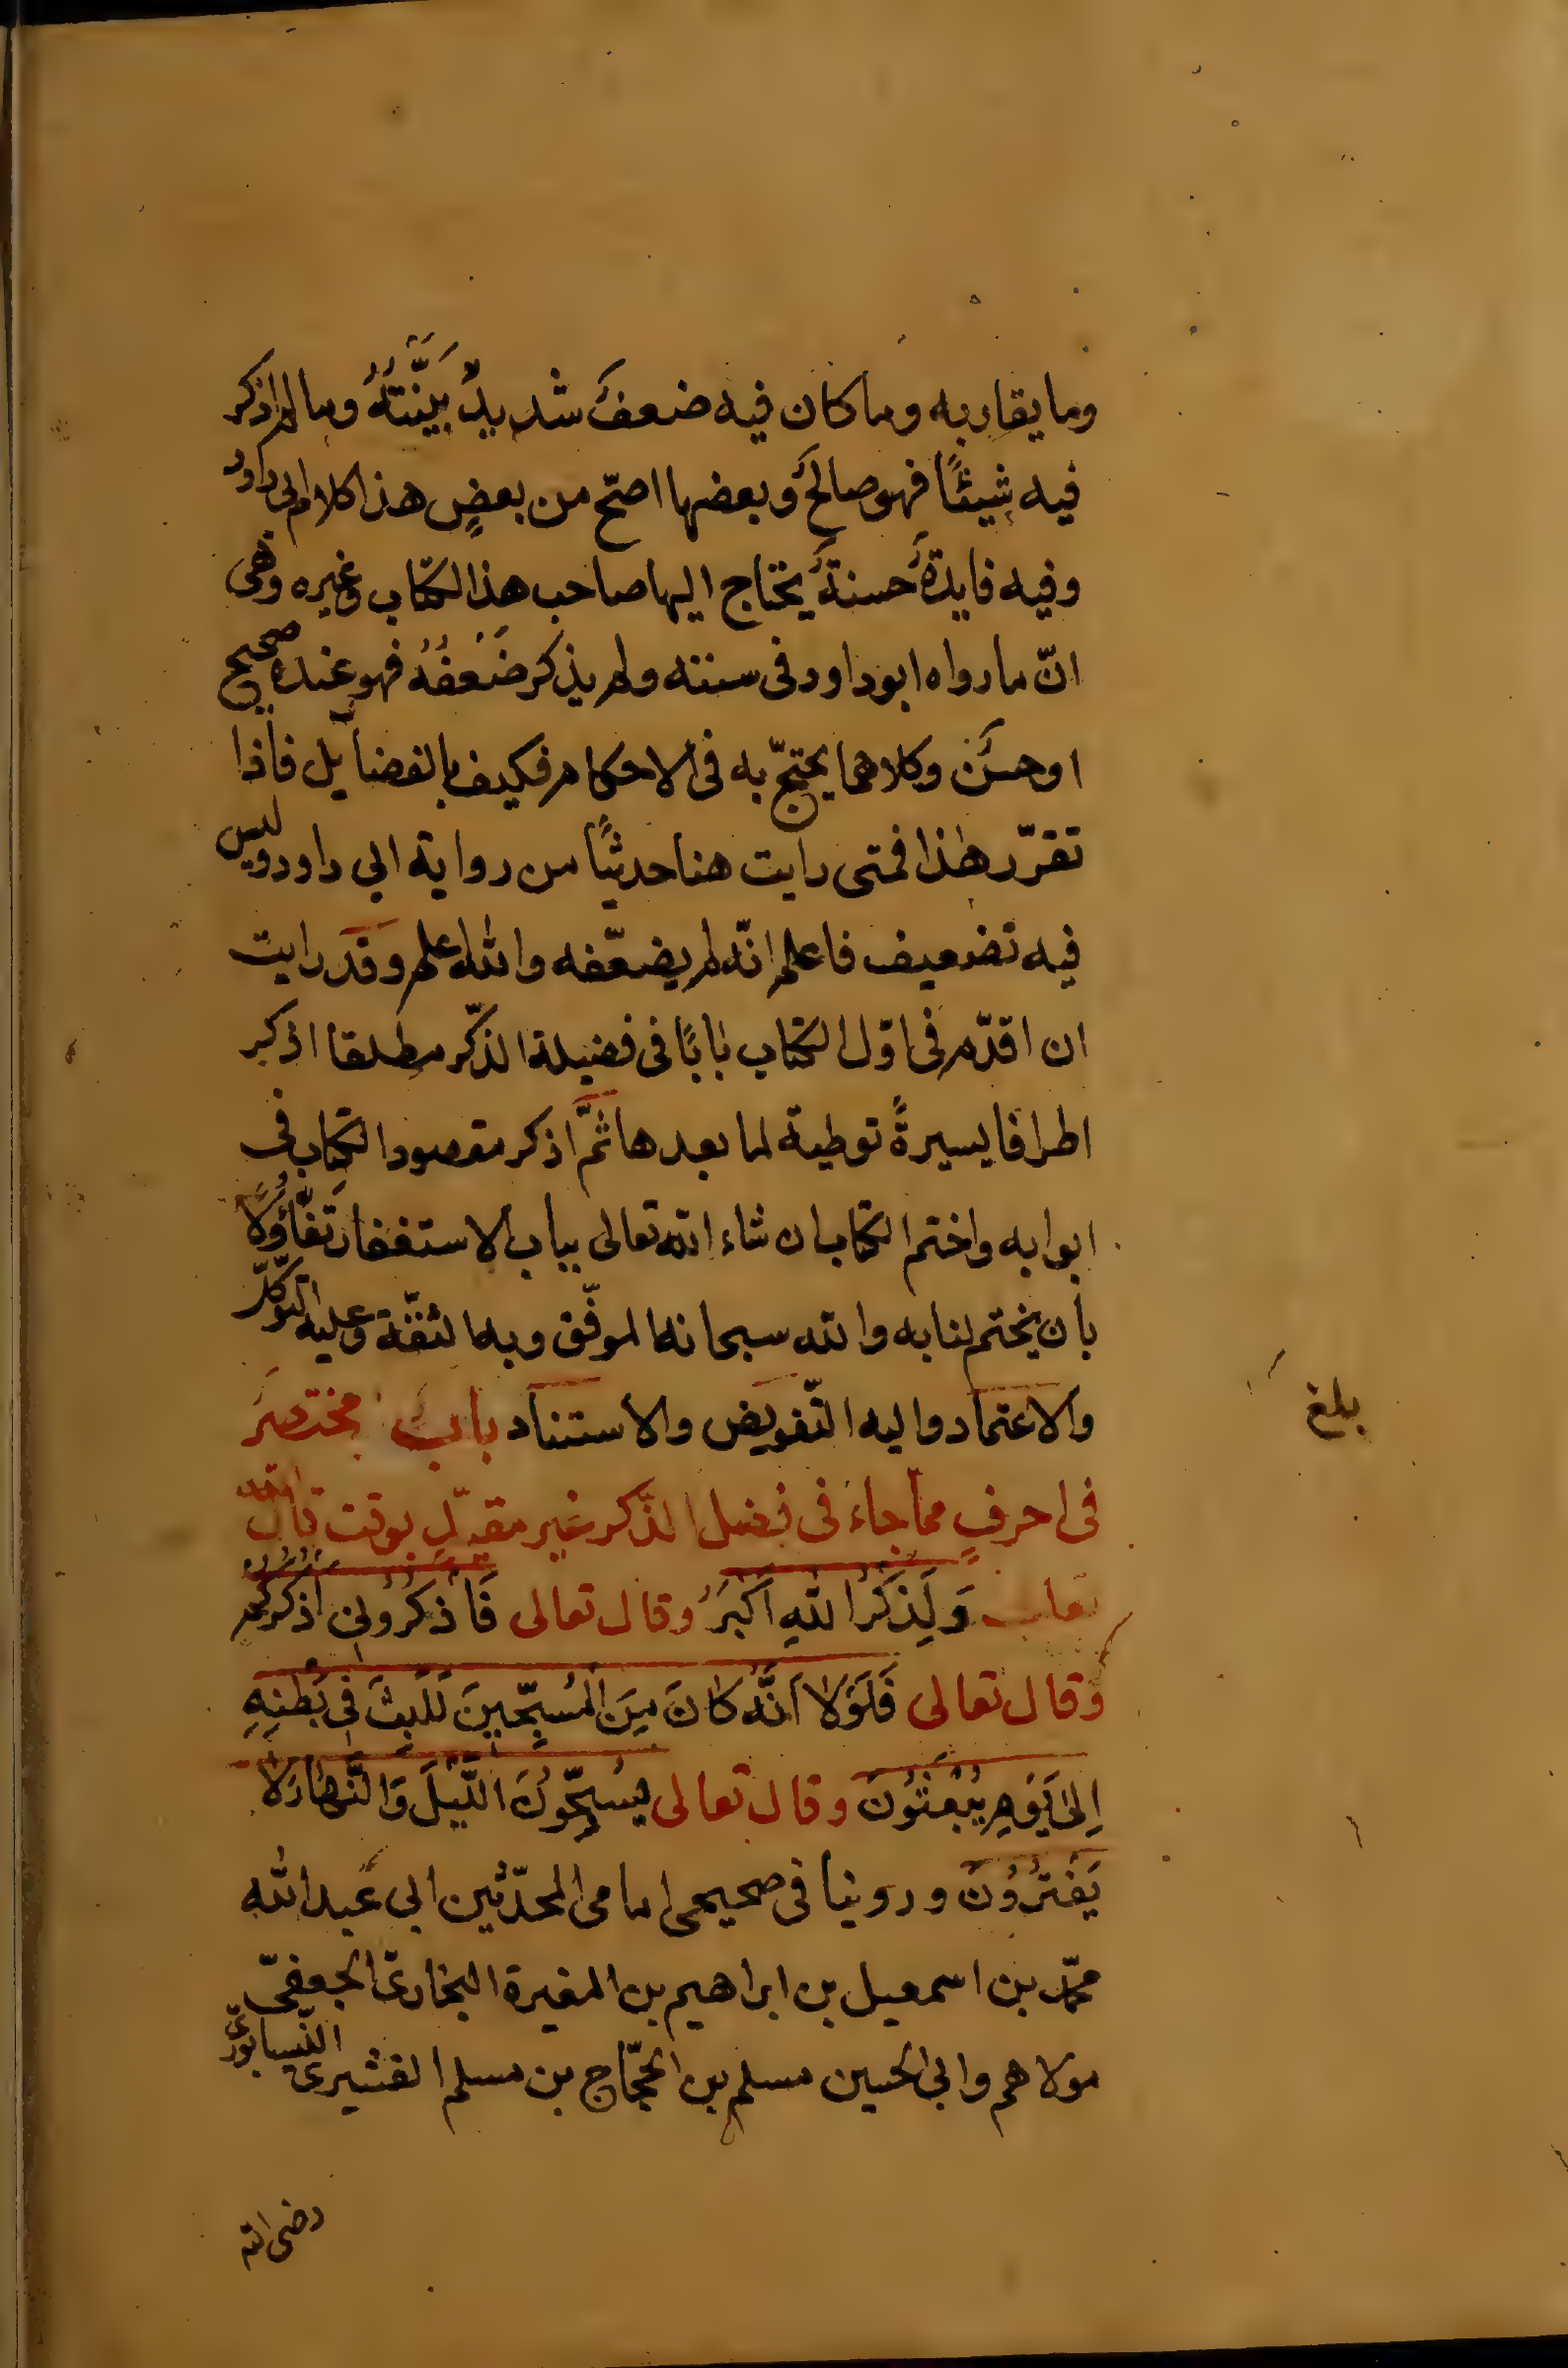 وما يقاربه وما كان فيه ضعفٌ شديدٌ بَيَّنْتُهُ وما لم اذكر
فيه شيئًا فهو صالحٌ وبعضها اصحّ من بعضٍ هذا كلام ابى داود
وفيه فايدةٌ حسنةٌ يحتاج اليها صاحب هذا الكتاب وغيره وهى
انّ ما رواه ابو داود فى سننه ولم يذكر ضَعفَهُ فهو عنده صحيح
او حسنٌ وكلاهما يحتجّ به فى الاحكام فكيف بالفضايل فاذا
تقرّر هذا فمتى رايت هنا حديثًا من رواية ابي داود وليس
فيه تضعيف فاعلم انّه لم يضعّفه والله اعلم وقد رايت
ان اقدّم فى اوّل الكتاب بابًا فى فضيلة الذّكر مطلقا اذكر
اطرافا يسيرةً توطية لما بعدها ثمّ اذكر مقصود الكتاب فى
ابوابه واختم الكتاب ان شاء الله تعالى بباب الاستغفار تَفَاؤُلًا
بأن يختم لنا به والله سبحانه الموفّق وبه الثقّة وعليه التوكّل
والاعتماد واليه التّفويض والاستناد بابٌ مختصرٌ
بلغ
فى احرفٍ ممّا جاء فى فضل الذّكر غير مقيّدٍ بوقت قال الله
تعالى وَلَذِكْرُ اللّٰهِ اَكْبَرُ وقال تعالى فَاذْكُرُونِى اَذْكُرْكُمْ
وقال تعالى فَلَوْلَا اَنَّهُ كَانَ مِنَ الْمُسَبِّحِينَ لَلَبِثَ فِى بَطْنِهِ
اِلىٰ يَوْمِ يُبْعَثُونَ وقال تعالى يُسَبِّحُونَ اللَّيْلَ وَالنَّهَارَ لَا
يَفْتُرُونَ وروينا فى صحيحى امامى المحدّثين ابى عبد الله
محمّد بن اسمعيل بن ابراهيم بن المغيرة البخارىّ الجعفىّ
مولاهم وابى الحسين مسلم بن الحجّاج بن مسلم القشيرى النيسابورىّ
رضى الله